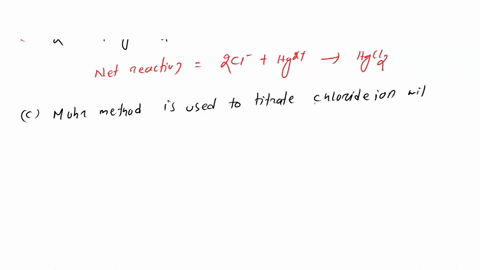 Net reaction = 2Cl⁻ + Hg²⁺ → HgCl₂
(c) Mohr method is used to titrate chloride ion wil